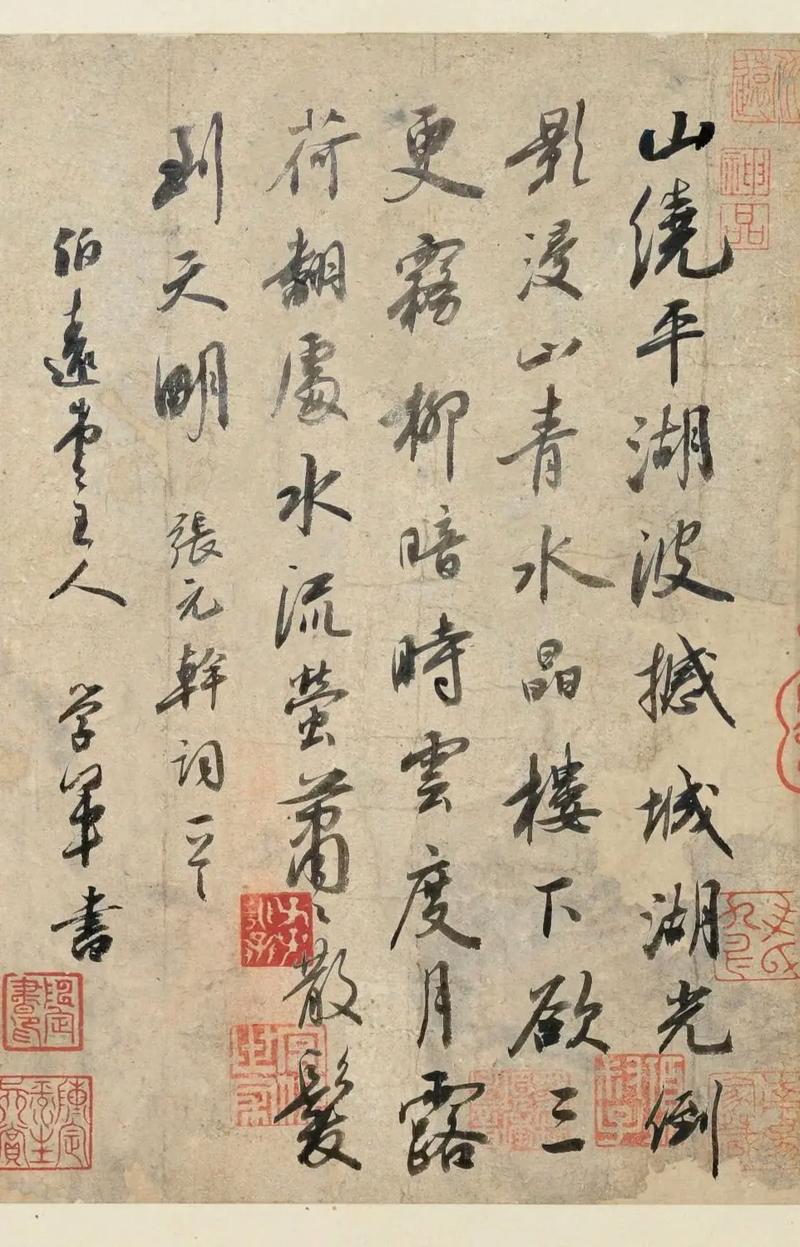 神品
山繞平湖波撼城湖光倒
影浸山青水晶樓下欲三
更霧柳暗時雲度月露
荷翻處水流螢蕭〻散髮
到天明 張元幹詞一
伯遠堂主人 学軍書